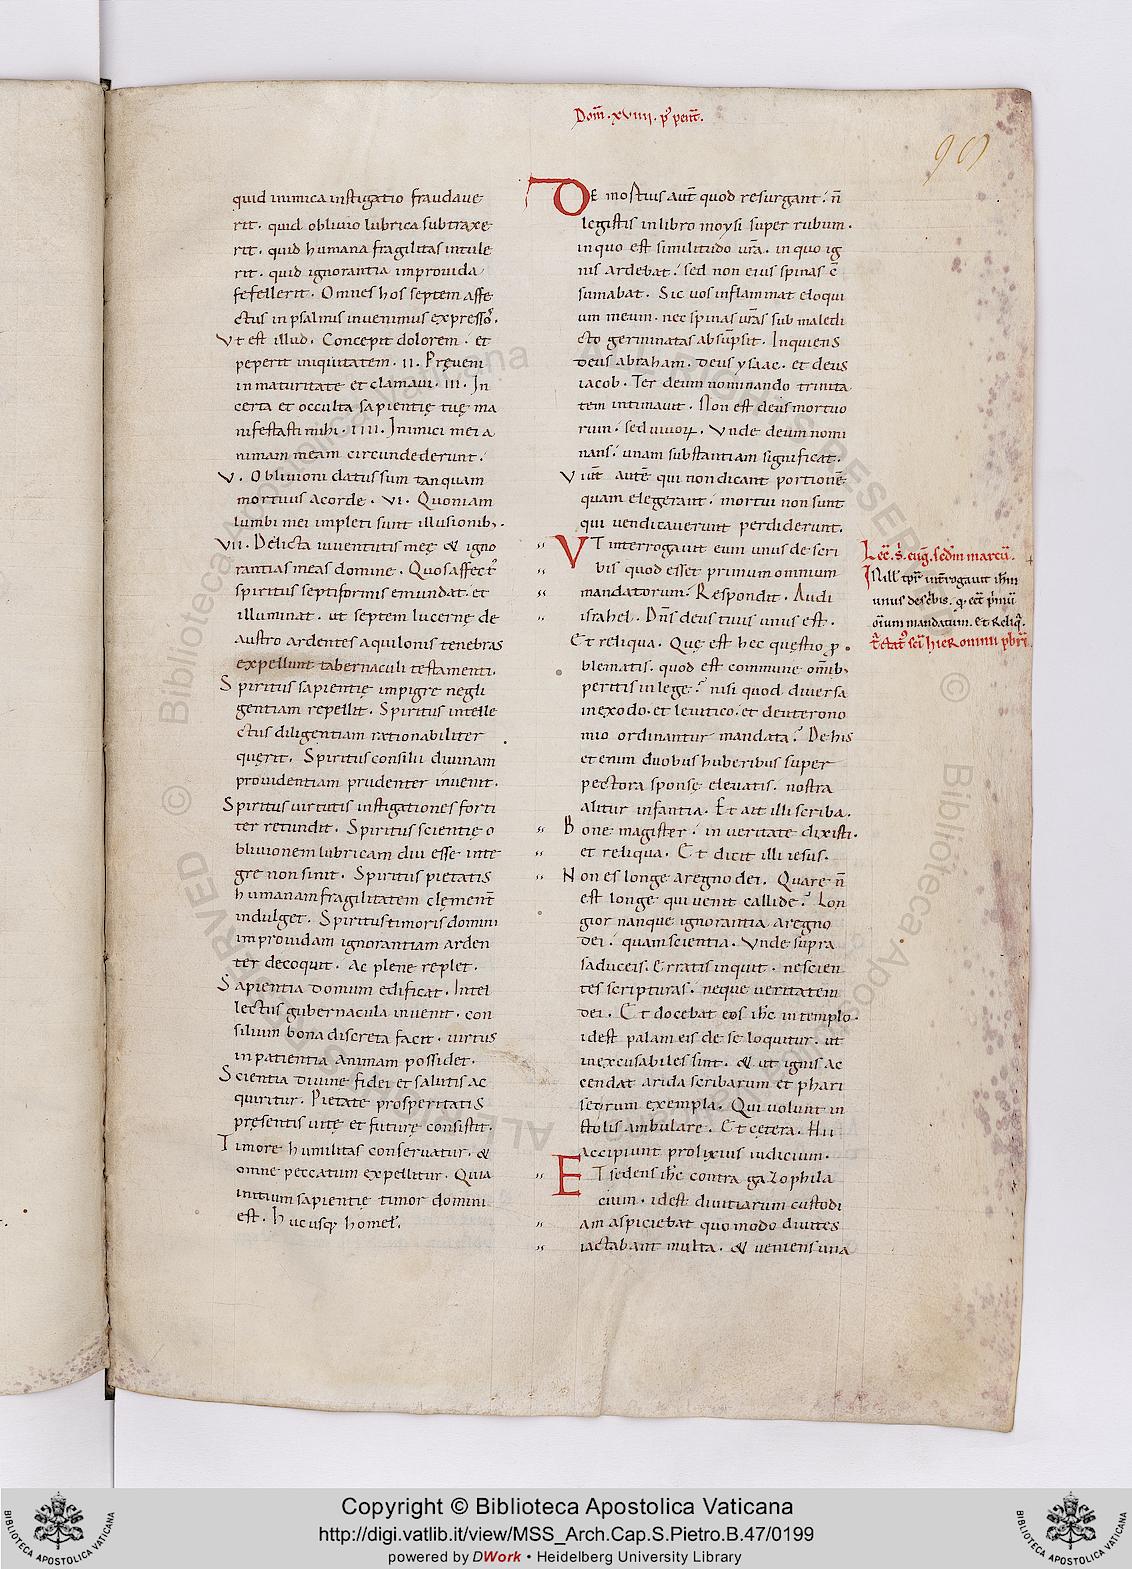 Dom̄ · xviiii · p᷒ pent̄.
99
quid inimica instigatio fraudaue
rit · quid obliuio lubrica subtraxe
rit · quid humana fragilitas intule
rit · quid ignorantia improuida
fefellerit · Omnes hos septem affe
ctus in psalmis inuenimus expresso᷒.
Vt est illud · Concepit dolorem · et
peperit iniquitatem · II · Pręueni
in maturitate et clamaui · III · In
certa et occulta sapientię tuę ma
nifestasti mihi · IIII · Inimici mei a
nimam meam circundederunt ·
V · Obliuioni datus sum tanquam
mortuus acorde · VI · Quoniam
lumbi mei impleti sunt illusionib; ·
VII · Delicta iuuentutis meę & igno
rantias meas domine · Quos affect᷒
spiritus septiformis emundat · et
illuminat · ut septem lucernę de
austro ardentes aquilonis tenebras
expellunt tabernaculi testamenti.
Spiritus sapientię impigre negli
gentiam repellit · Spiritus intelle
ctus diligentiam rationabiliter
querit · Spiritus consilii diuinam
prouidentiam prudenter inuenit ·
Spiritus uirtutis instigationes forti
ter retundit · Spiritus scientię o
bliuionem lubricam diu esse inte
gre non sinit · Spiritus pietatis
humanam fragilitatem clement̄
indulget · Spiritus timoris domini
improuidam ignorantiam arden
ter decoquit · Ac plene replet ·
Sapientia domum edificat · Intel
lectus gubernacula inuenit · con
silium bona discreta facit · uirtus
in patientia animam possidet ·
Scientia diuine fidei et salutis ac
quiritur · Pietate prosperitatis
pręsentis uitę et futurę consistit ·
Timore humilitas conseruatur · &
omne peccatum expellitur · Quia
initium sapientię timor domini
est · Hucusq; homel̄.
DE mortuis aut̄ quod resurgant · n̄
legistis in libro moysi super rubum ·
in quo est similitudo ur̄a · in quo ig
nis ardebat · sed non eius spinas c̄
sumabat · Sic uos inflammat eloqui
um meum · nec spinas ur̄as sub maledi
cto germinatas absūpsit · Inquiens
deus abraham · deus ysaac · et deus
iacob · Ter deum nominando trinita
tem intimauit · Non est deus mortuo
rum · sed uiuoꝝ · Vnde deum nomi
nans · unam substantiam significat ·
Viuūt autē qui non dicant portionē
quam elegerant · mortui non sunt
qui uendicauerunt perdiderunt ·
VT interrogauit eum unus de scri
bis quod esset primum omnium
mandatorum · Respondit · Audi
israhel · Dn̄s deus tuus unus est ·
Et reliqua · Quę est hec questio ꝓ
blematis · quod est commune om̄ib;
peritis in lege · nisi quod diuersa
in exodo · et leuitico · et deuterono
mio ordinantur mandata · De his
et enim duobus huberibus super
pectora sponsę eleuatis · nostra
alitur infantia · Et ait illi scriba ·
Bone magister · in ueritate dixisti ·
et reliqua · Et dicit illi iesus ·
Non es longe a regno dei · Quare n̄
est longe qui uenit callide · Lon
gior nanque ignorantia a regno
dei · quam scientia · Vnde supra
saduceis · Erratis inquit · nescien
tes scripturas · neque ueritatem
dei · Et docebat eos ih̄c in templo ·
idest palam eis de se loquitur · ut
inexcusabiles sint · & ut ignis ac
cendat arida scribarum et phari
seorum exempla · Qui uolunt in
stolis ambulare · Et cętera · Hii
accipiunt prolixius iudicium ·
ET sedens ih̄c contra gazophila
cium · idest diuitiarum custodi
am aspiciebat quo modo diuites
iactabant multa · & ueniens una
Lec̄ · s̄ · euḡ · sedm̄ marcū ·
In ill̄ tp̄r int̄rogauit ih̄m
unus de sc̄bis · q · eēt p̄mū
oīum mandatum · et reliq̄ ·
Tr̄ctat᷒ sc̄i hieronimi pb̄ri
Copyright © Biblioteca Apostolica Vaticana
http://digi.vatlib.it/view/MSS_Arch.Cap.S.Pietro.B.47/0199
powered by DWork • Heidelberg University Library
BIBLIOTECA APOSTOLICA VATICANA
BIBLIOTECA APOSTOLICA VATICANA